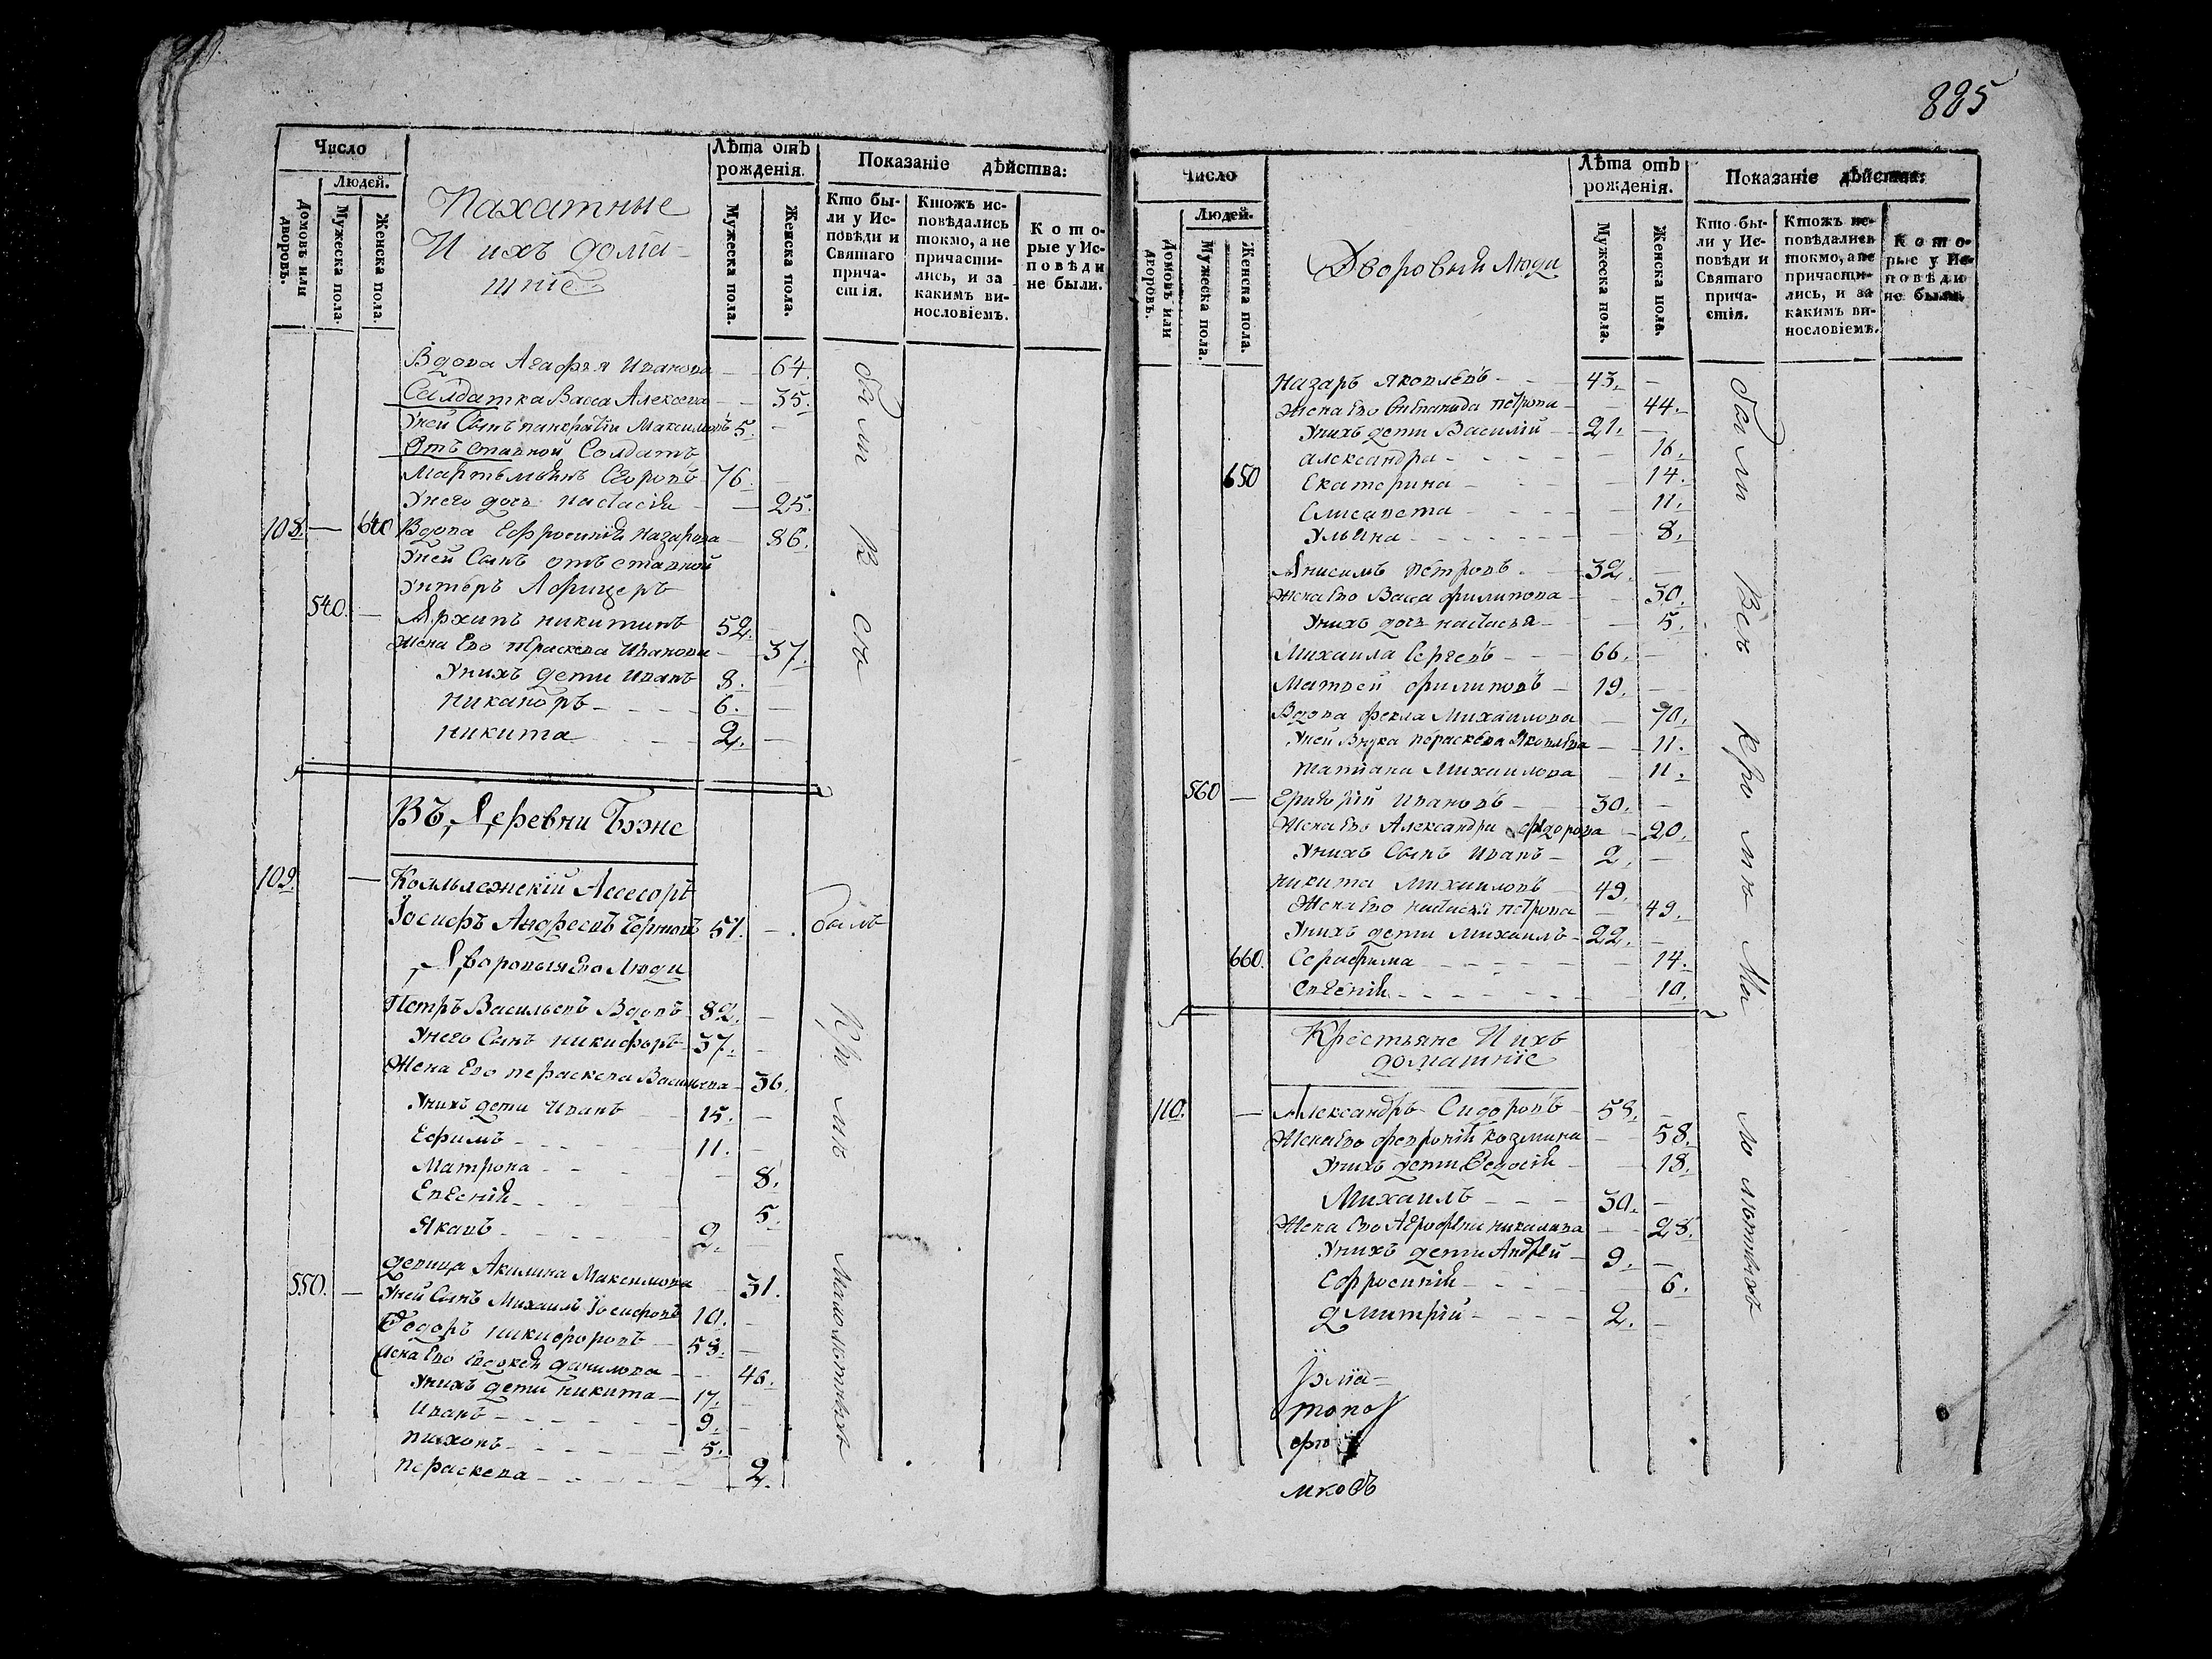 885
Число
Людей.
Домовъ или дворовъ.
Мужеска пола.
Женска пола.
Пахатные
И ихъ дома-
шніе
Лѣта отъ
рожденія.
Мужеска пола.
Женска пола.
Показаніе дѣйства:
Кто бы-
ли у Ис-
повѣди и
Святаго
прича-
стія.
Ктожъ ис-
повѣдались
токмо, а не
причасти-
лись, и за
какимъ ви-
нословіемъ.
Кото-
рые у Ис-
повѣди
не были.
Вдова Агафья Иванова — 64.
Салдатка Васса Алексева — 35.
Уней Сынъ панкратіи Максимовъ 5. —
Отъ ставной Солдатъ
Мартемьянъ Егоровъ 76. —
Унего дочь настасія — 25.
108. — 640 Вдова Ефросинія Назарова — 86.
Уней Сынъ отъ ставной
Унтеръ Афицеръ
540. — Архипъ никитинъ 52. —
Жена Ево пераскева Иванова — 37.
Унихъ дети Иванъ 8. —
Никаноръ 6. —
никита 2. —
были все
Въ Деревни Бэнс
109. — Коллъежскій Ассесоръ
Іосифъ Андреевъ 51. — былъ
Дворовыя Ево Люди
Петръ Васильевъ Вдовъ 82. —
Унего Сынъ никифоръ 37. —
Жена Ево пераскева Васильева — 36.
Унихъ дети Иванъ 15. —
Ефимъ 11. —
Матрона — 8.
Евгенія — 5.
Якавъ 2. —
девица Акилина Максимова — 31.
550. — Уней Сынъ Михаилъ Іосифовъ 10. —
Федоръ никифоровъ 58. —
Жена Ево Евдокея данилова — 46.
Унихъ дети никита 17. —
Иванъ 9. —
тихонъ 5. —
пераскева — 2.
Кромѣ Малолетныхъ
Число
Людей.
Домовъ или дворовъ.
Мужеска пола.
Женска пола.
Дворовыи Люди
Лѣта отъ
рожденія.
Мужеска пола.
Женска пола.
Показаніе дѣйства:
Кто бы-
ли у Ис-
повѣди и
Святаго
прича-
стія.
Ктожъ ис-
повѣдались
токмо, а не
причасти-
лись, и за
какимъ ви-
нословіемъ.
Кото-
рые у Ис-
повѣди
не были.
Назаръ Яковлевъ 43. —
Жена Ево Степанида петрова — 44.
Унихъ дети Василий 21. —
александра — 16.
650 Екатерина — 14.
Елисавета — 11.
Ульяна — 8.
Анисимъ Петровъ 32. —
Жена Ево Васса филипова — 30.
Унихъ дочь настасья — 5.
Михаила Сергевъ 66. —
Матвей филиповъ 19. —
Вдова фекла Михаилова — 70.
Уней Внука пераскева Яковлева — 11.
татияна Михаилова — 11.
560 — Григорий Ивановъ 30. —
Жена Ево Александра федорова — 20.
Унихъ Сынъ Иванъ 2. —
никита Михаиловъ 49. —
Жена Ево настасия петрова — 49.
Унихъ дети Михаилъ 22. —
660. Серафима — 14.
Евгения — 10.
Крестьяне И ихъ
домашніе
110. — Александръ Сидоровъ 58. —
Жена Ево февронія Козмина — 58.
Унихъ дети Федосія — 18.
Михаилъ 30. —
Жена Ево Агрофена никалаева — 28.
Унихъ дети Андрей 9. —
Ефросинія — 6.
дмитрій 2. —
были Все Кромѣ Малолютныхъ